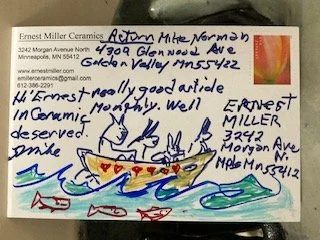 Ernest Miller Ceramics
3242 Morgan Avenue North
Minneapolis, MN 55412
www.ernestmiller.com
emillerceramics@gmail.com
612-386-2291
Return Mike Norman
4309 Glenwood Ave
Golden Valley Mn 55422
Hi Ernest - really good article
in Ceramic Monthly. Well
deserved.
Mike
ERNEST
MILLER
3242
Morgan Ave
N.
Mpls Mn 55412